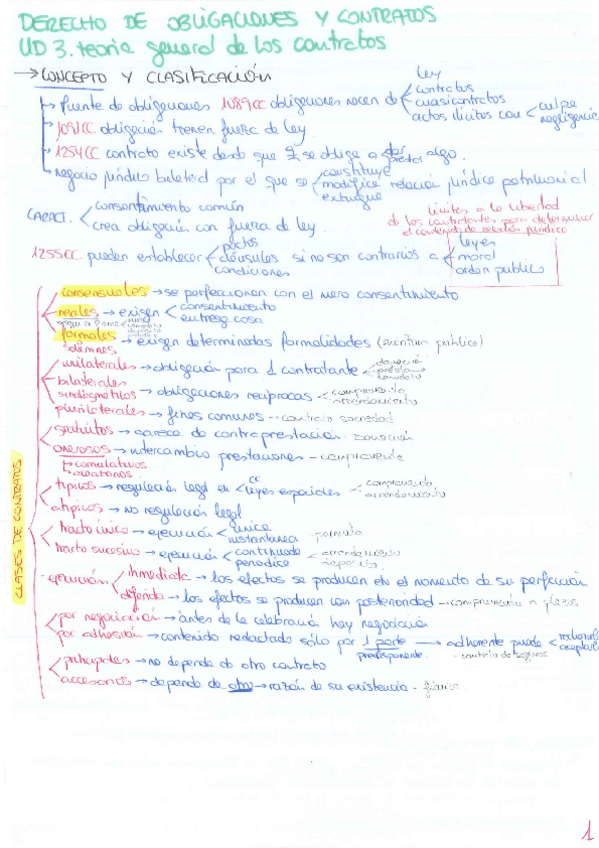 DERECHO DE OBLIGACIONES Y CONTRATOS
UD 3. teoría general de los contratos
→ CONCEPTO Y CLASIFICACIÓN
ley
fuente de obligaciones 1089CC obligaciones nacen de contratos
cuasicontratos
actos ilícitos con culpa
negligencia
1091CC obligación tienen fuerza de ley
1254CC contrato existe desde que se obliga a dar algo.
negocio jurídico bilateral por el que se constituye
modifica relación jurídica patrimonial
extingue
CARACT. consentimiento común
crea obligación con fuerza de ley.
límites a la libertad
de los contratantes para determinar
el contenido de
1255CC pueden establecer pactos
cláusulas si no son contrarios a
condiciones
leyes
moral
orden público
CLASES DE CONTRATOS
consensuales → se perfeccionan con el mero consentimiento
reales → exigen consentimiento
entrega cosa
formales
solemnes → exigen determinadas formalidades (escritura pública)
unilaterales → obligación para 1 contratante donación
préstamo
bilaterales
sinalagmáticos → obligaciones recíprocas compraventa
arrendamiento
plurilaterales → fines comunes - contrato sociedad
gratuitos → carece de contraprestación - donación
onerosos → intercambio prestaciones - compraventa
conmutativos
aleatorios
típicos → regulación legal en CC
leyes especiales compraventa
arrendamiento
atípicos → no regulación legal
tracto único → ejecución única
instantánea - permuta
tracto sucesivo → ejecución continuada
periódica arrendamiento
depósito
ejecución inmediata → los efectos se producen en el momento de su perfección
diferida → los efectos se producen con posterioridad - compraventa a plazos
por negociación → antes de la celebración hay negociación
por adhesión → contenido redactado sólo por 1 parte → adherente puede rechazarlo
aceptarlo
predisponente - contrato de seguros
principales → no depende de otro contrato
accesorios → depende de otro → razón de su existencia - fianza
1